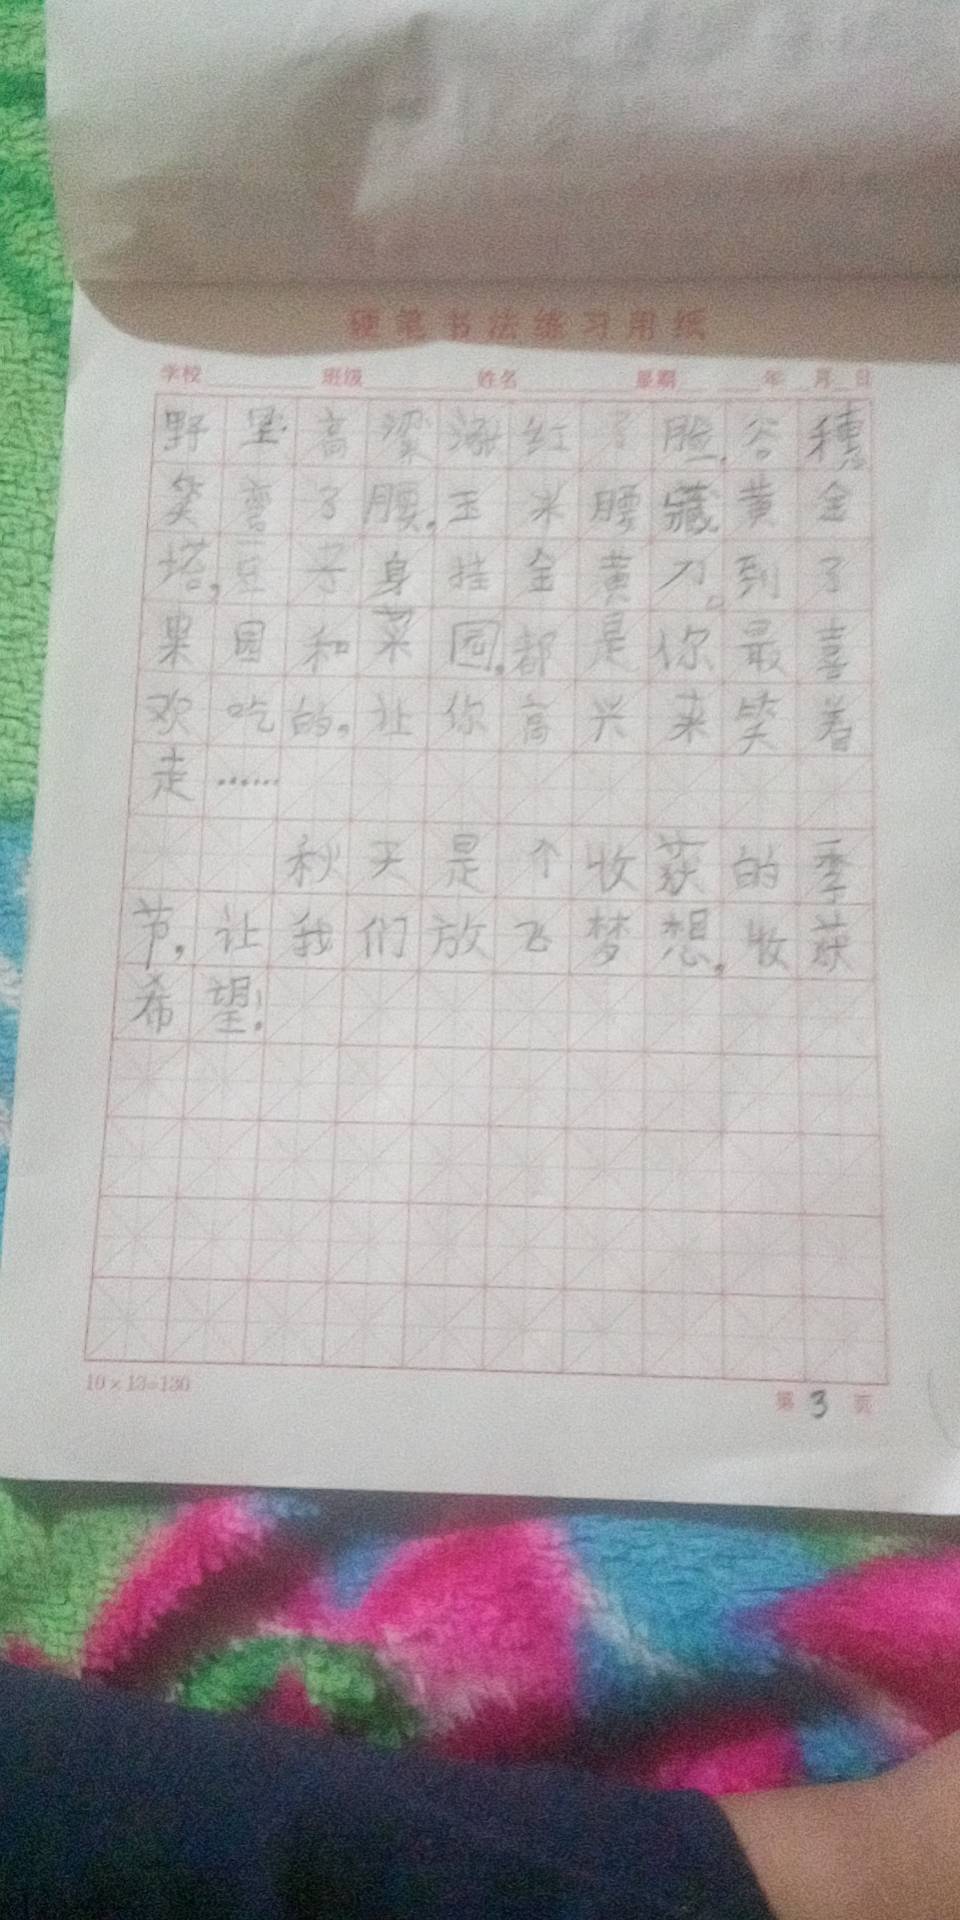 硬笔书法练习用纸
学校 班级 姓名 星期 年 月 日
野里高粱涨红了脸,谷穗
笑弯了腰。玉米腰藏黄金
塔,豆子身挂金黄刀。到了
果园和菜园,都是你最喜
欢吃的。让你高兴来笑着
走……
秋天是个收获的季
节,让我们放飞梦想,收获
希望!
10×13=130
第 3 页